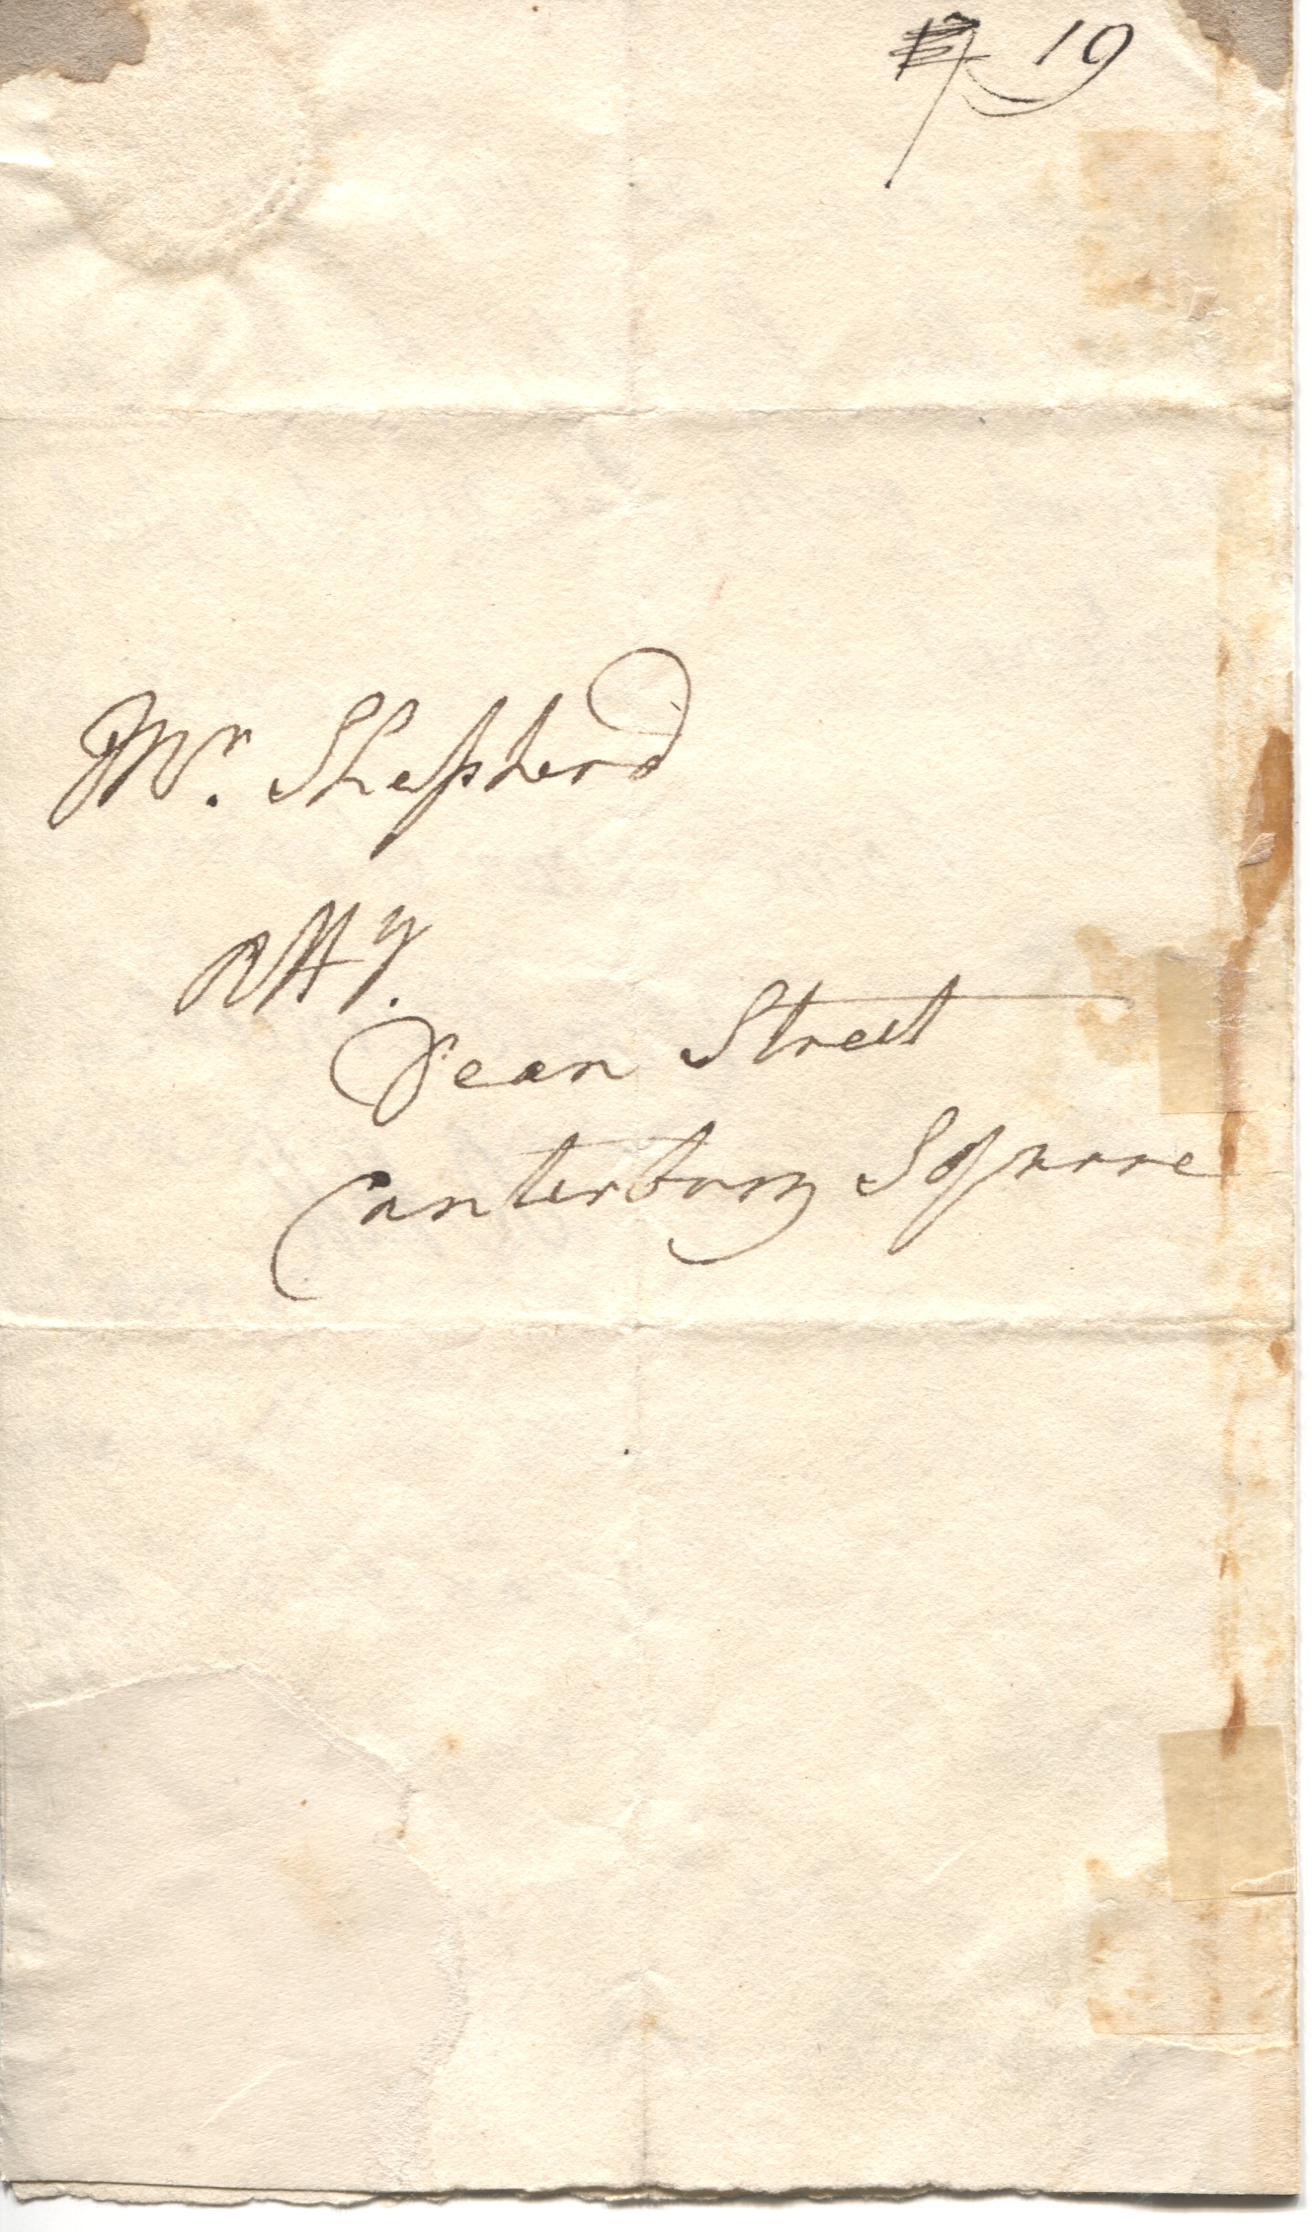 19
Mr. Shepherd
Atty.
Dean Street
Canterbury Square